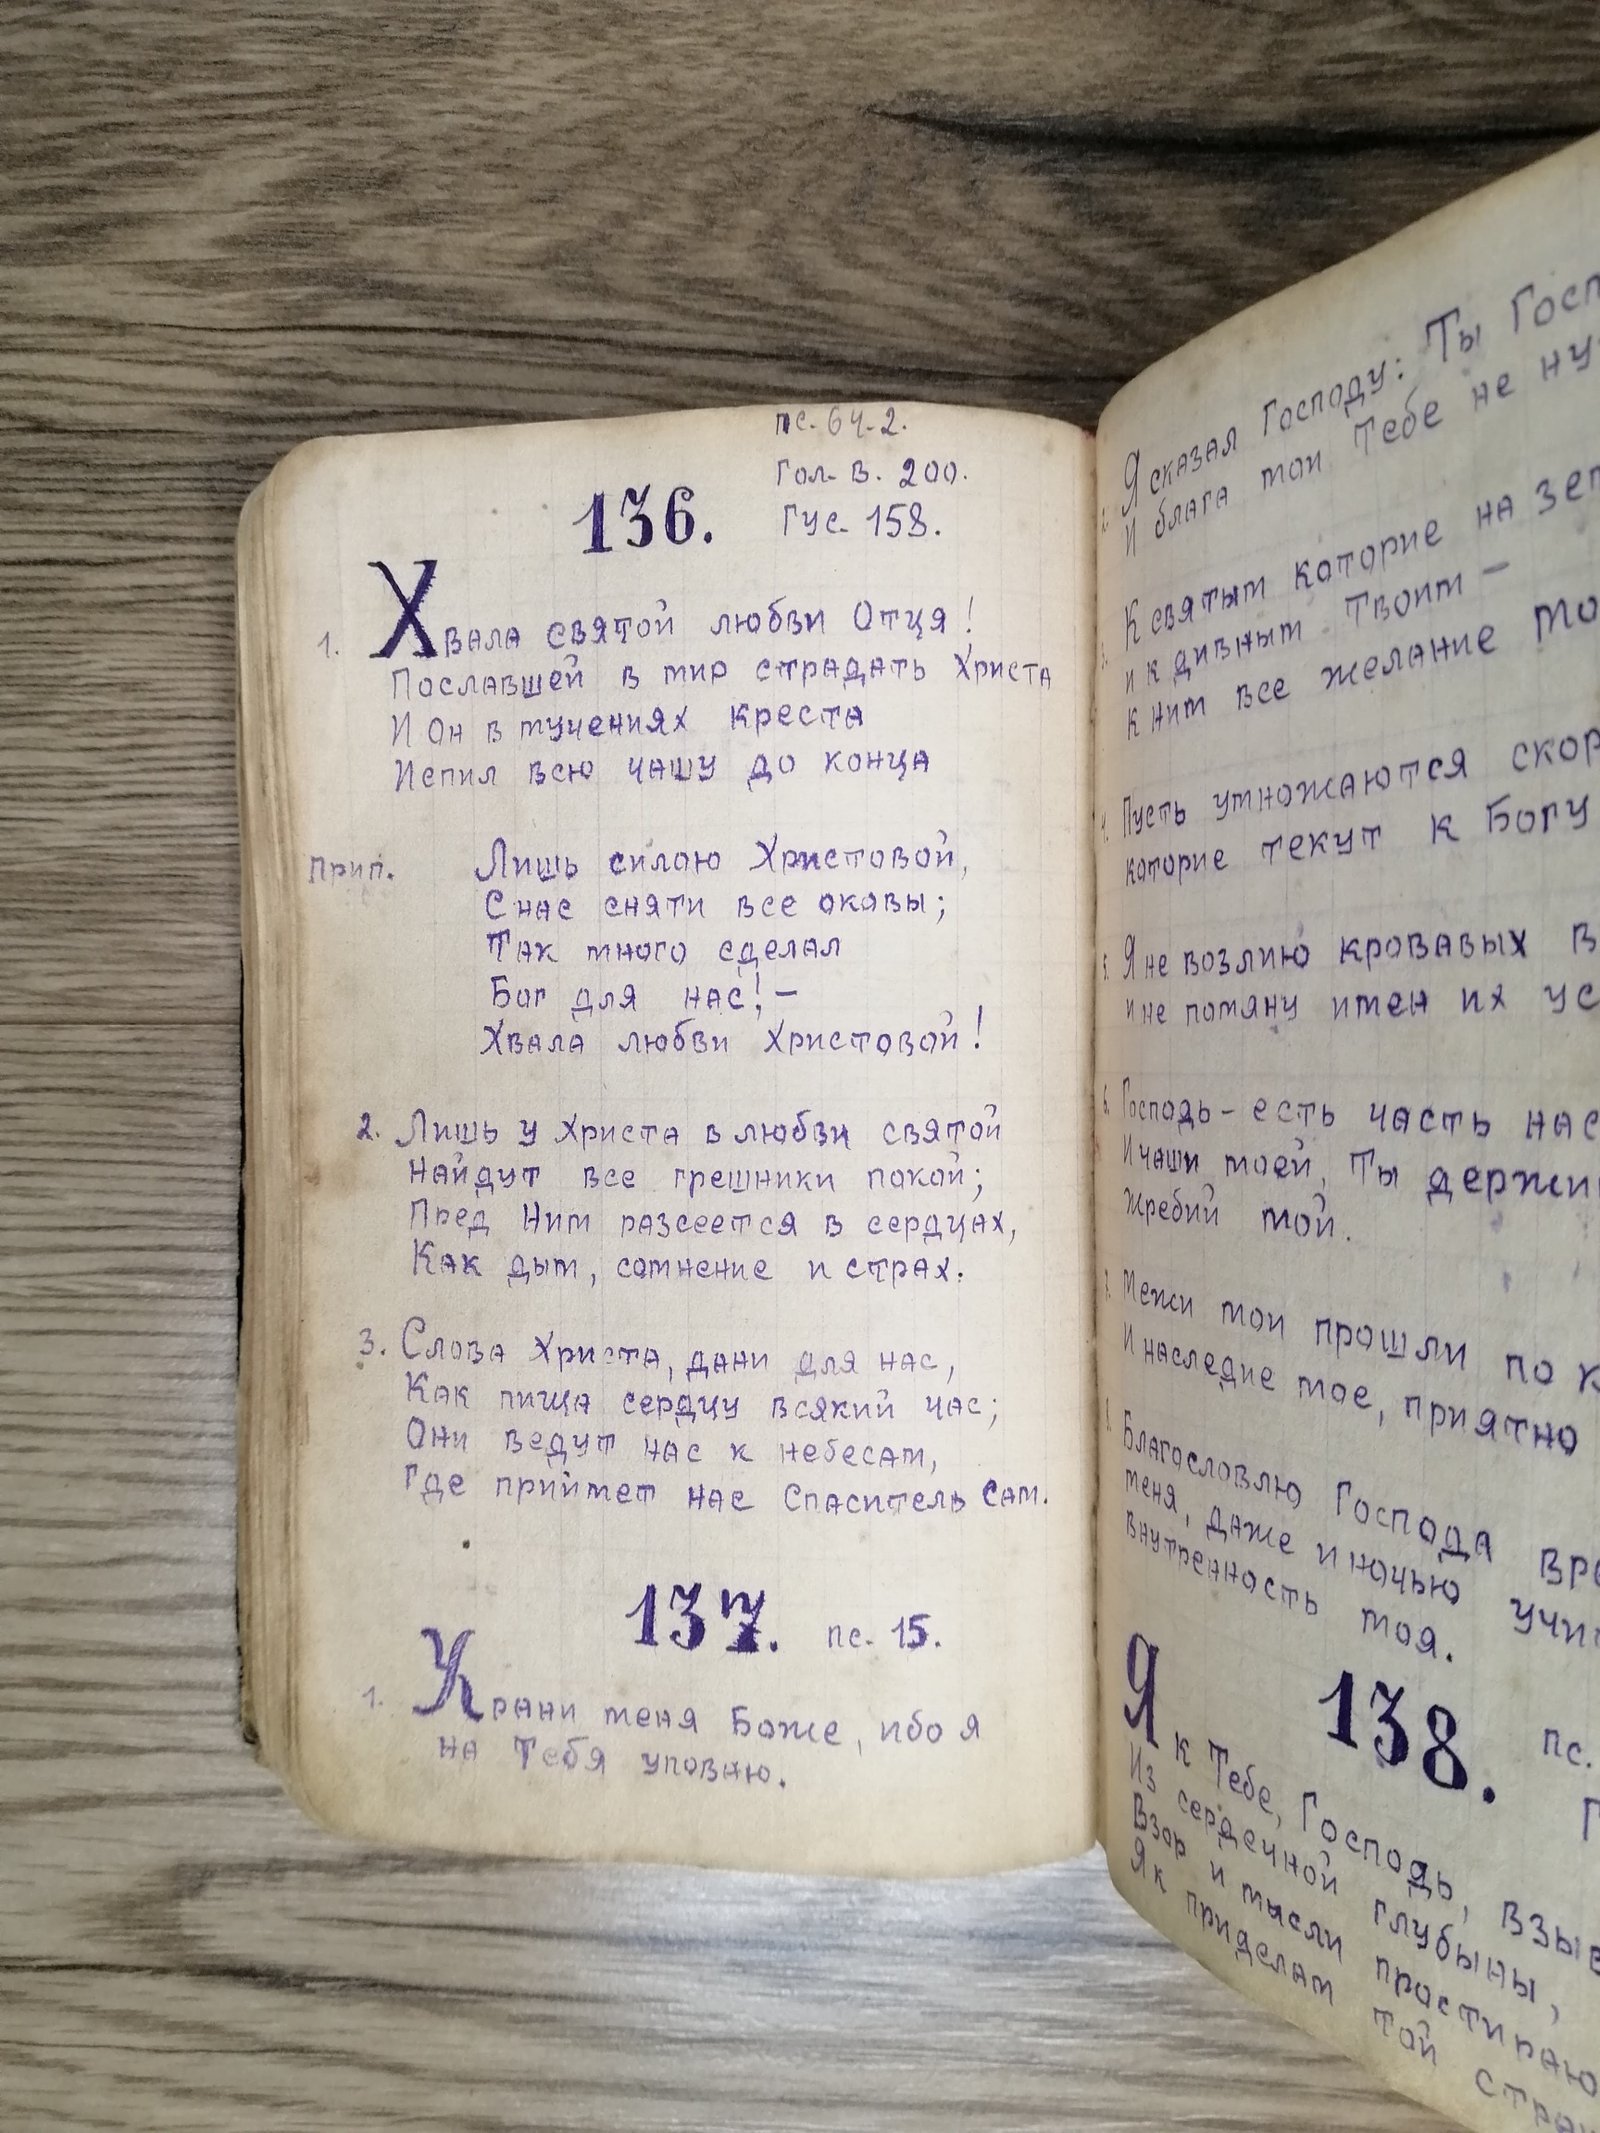 пс. 64-2.
Гол. В. 200.
136.
Гус. 158.
1. Хвала святой любви Отця!
Пославшей в мир страдать Христа
И Он в мучениях креста
Испил всю чашу до конца
Прип. Лишь силою Христовой,
С нас сняти все оковы;
Так много сделал
Бог для нас! –
Хвала любви Христовой!
2. Лишь у Христа в любви святой
Найдут все грешники покой;
Пред Ним разсеется в сердцах,
Как дым, сомнение и страх.
3. Слова Христа, дани для нас,
Как пища сердцу всякий час;
Они ведут нас к небесам,
Где прийтмет нас Спаситель Сам.
137. пс. 15.
1. Храни меня Боже, ибо я
на Тебя уповаю.
2. Я сказал Господу: Ты Госп
И блага мои Тебе не ну
3. К святым которие на зем
и к дивным Твоим –
к ним все желание мо
4. Пусть умножаются скор
которие текут к Богу
5. Я не возлию кровавых в
и не помяну имен их ус
6. Господь – есть часть нас
И чаши моей, Ты держи
жребий мой.
7. Межи мои прошли по к
И наследие мое, приятно
8. Благословлю Господа вра
меня, даже и ночью учи
внутренность моя.
138. пс.
Я к Тебе, Господь, взыв
Из сердечной глубыны,
Взор и мысли простираю
Як приделам той стра